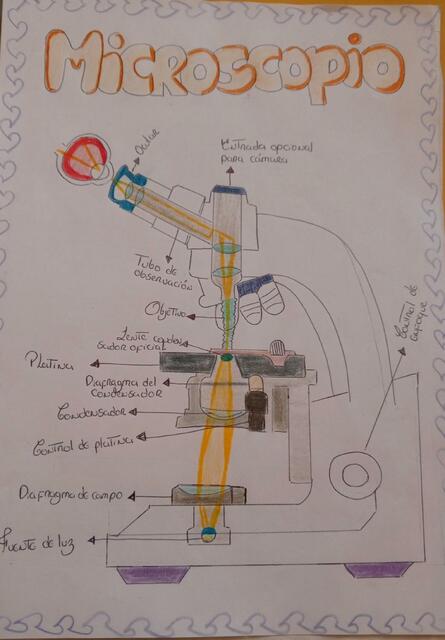 Microscopio
Ocular
Entrada opcional
para cámara
Tubo de
observación
Objetivo
Control de
enfoque
Lente conden
sador oficial
Platina
Diafragma del
condensador
Condensador
Control de platina
Diafragma de campo
Fuente de luz